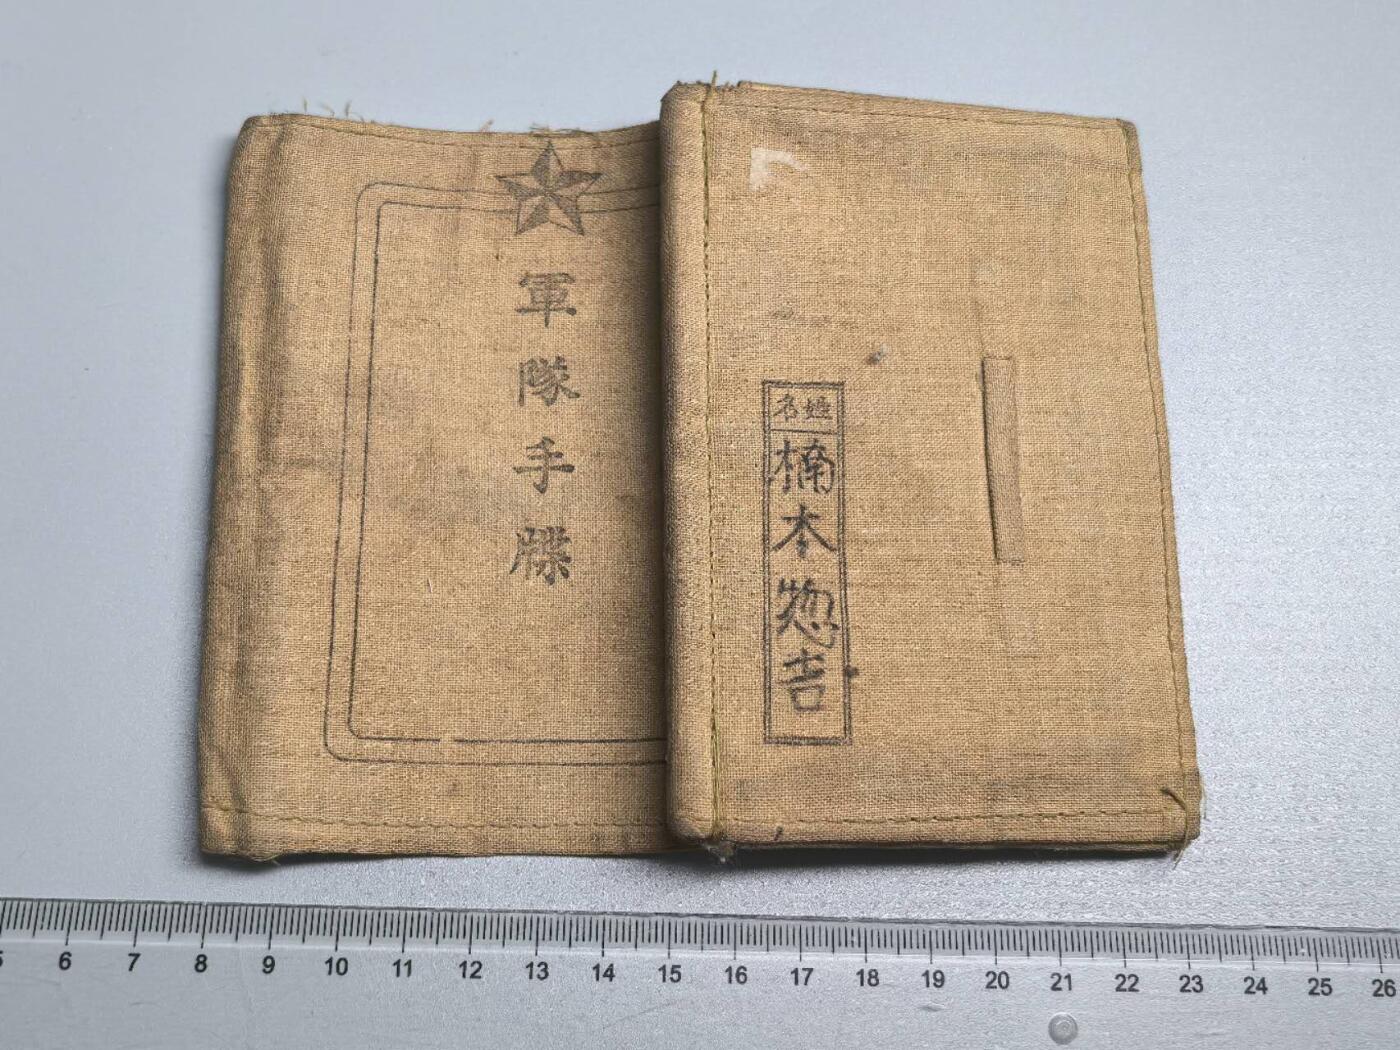 軍隊手牒
姓名
楠本惣吉
5 6 7 8 9 10 11 12 13 14 15 16 17 18 19 20 21 22 23 24 25 26